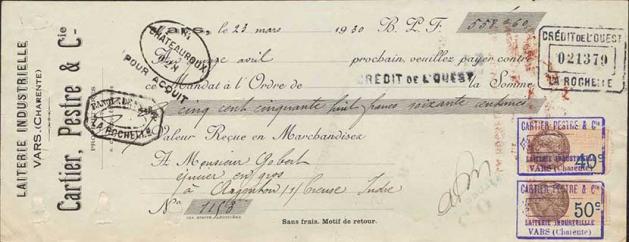 LAITERIE INDUSTRIELLE
VARS (CHARENTE)
Cartier, Pestre & Cie
Vars, le 23 mars 1930 B.P.F. 558.60
avril prochain, veuillez payer contre
ce Mandat à l'Ordre de la Somme
cinq cent cinquante huit francs soixante centimes
Valeur Reçue en Marchandises
A Monsieur Gobert
épicier en gros
à Argenton s/ Creuse Indre
No 1153
Sans frais. Motif de retour.
CHATEAUROUX
POUR ACQUIT
LA ROCHELLE
CRÉDIT DE L'OUEST
CRÉDIT DE L'OUEST
021379
LA ROCHELLE
CARTIER PESTRE & Cie
40c
LAITERIE INDUSTRIELLE
VARS (Charente)
CARTIER PESTRE & Cie
50c
LAITERIE INDUSTRIELLE
VARS (Charente)